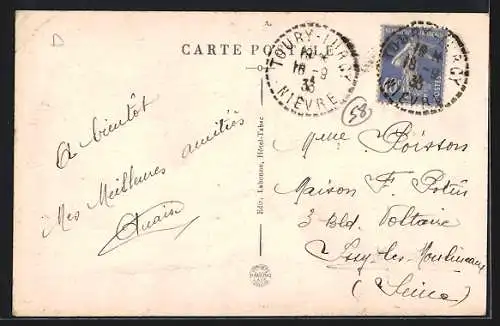 D
CARTE POSTALE
TOURY-LURCY
18 -9
35
NIEVRE
TOURY-LURCY
18 -9
35
NIEVRE
POSTES
58
A bientôt
Mes Meilleures amitiés
Edit. Labonne, Hôtel-Tabac
Mme Poisson
Maison F. Potin
3 Bld. Voltaire
Issy-les-Moulineaux
(Seine)